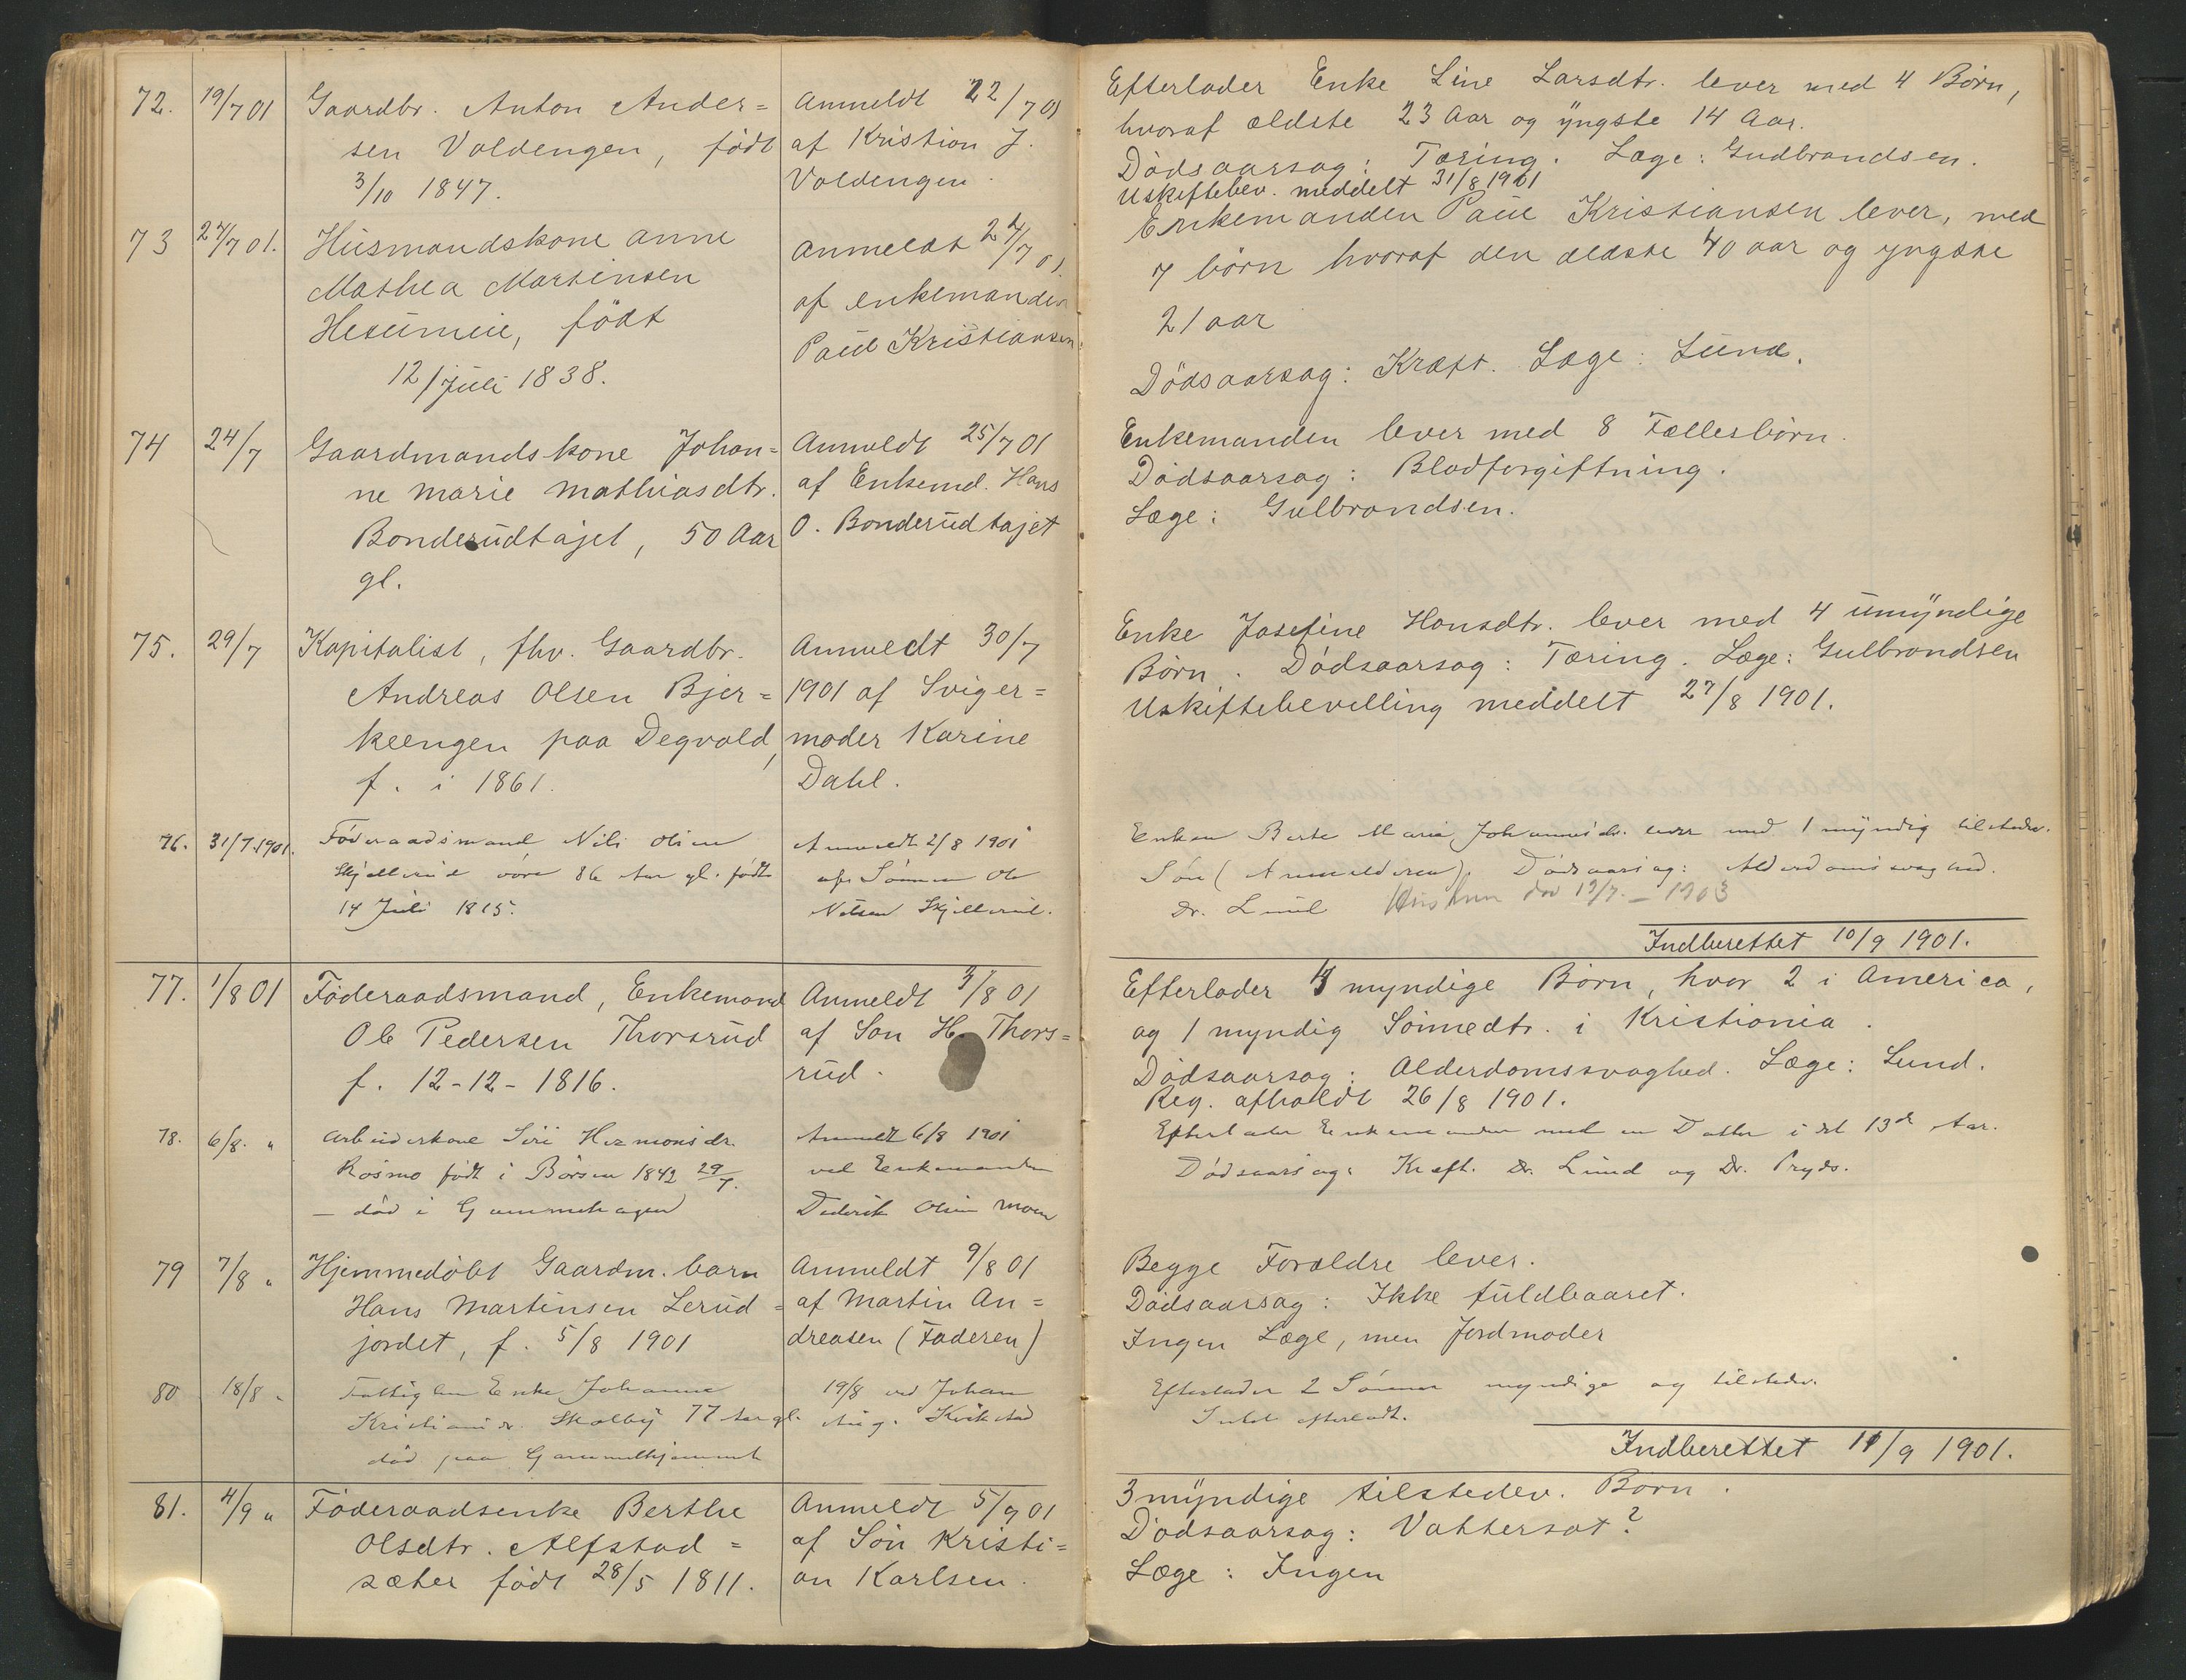 72. 19/7 01 Gaardbr. Anton Ander=
sen Voldengen, født
3/10 1847.
Anmeldt 22/7 01
af Kristian J.
Voldengen.
Efterlader Enke Line Larsdtr. lever med 4 Børn,
hvoraf ældste 23 Aar og yngste 14 Aar.
Dødsaarsag: Tæring. Læge: Gudbrandsen.
Uskiftebev. meddelt 31/8 1901
73 24/7 01. Husmandskone Anne
Mathea Martinsen
født
12/Juli 1838.
Anmeldt 24/7 01.
af enkemanden
Paul Kristiansen.
Enkemanden Paul Kristiansen lever, med
7 børn hvoraf den ældste 40 aar og yngste
21 aar
Dødsaarsag: Kræft. Læge: Lund.
74 24/7 Gaardmandskone Johan=
ne Marie Mathiasdtr.
Bonderudtajet, 50 Aar
gl.
Anmeldt 25/7 01
af Enkemd. Hans
O. Bonderudtajet
Enkemanden lever med 8 Fællesbørn.
Dødsaarsag: Blodforgiftning.
Læge: Gulbrandsen.
75. 29/7 Kapitalist, fhv. Gaardbr.
Andreas Olsen Bjer=
keengen paa Degvold,
f. i 1861.
Anmeldt 30/7
1901 af Sviger=
moder Karine
Dahl.
Enke Josefine Hansdtr. lever med 4 umyndige
Børn. Dødsaarsag: Tæring. Læge: Gulbrandsen
Uskiftebevilling meddelt 27/8 1901.
76. 31/7 1901. Føderaadsmand Nils Olsen
Skjellerud 86 Aar gl. født
14 Juli 1815.
Anmeldt 2/8 1901
af Sønnen Ole
Nilsen Skjellerud.
Enken Berte Marie Johannesdr. lever med 1 myndig tilstedev.
Søn (Anmelderen). Dødsaarsag: Alderdomssvaghed.
Dr. Lund død 19/7 - 1903
Indberettet 10/9 1901.
77. 1/8 01 Føderaadsmand, Enkemand
Ole Pedersen Thorsrud
f. 12-12-1816.
Anmeldt 3/8 01
af Søn H. Thors=
rud.
Efterlader 4 myndige Børn, hvor 2 i America,
og 1 myndig Sønnedtr. i Kristiania.
Dødsaarsag: Alderdomssvaghed. Læge: Lund.
Reg. afholdt 26/8 1901.
78. 6/8. " Arbeiderkone Siri Hermonsdr.
Rosmo født i Børsen 1842 29/7.
– død i Gammehagen
Anmeldt 6/8 1901
ved Enkemanden
Dederik Olsen Moen
Efterlader Enkemanden med en Datter i det 13de Aar.
Dødsaarsag: Kræft. Dr. Lund og Dr. Pryds.
79 7/8 " Hjemmedøbt Gaardm. barn
Hans Martinsen Lerud=
jordet, f. 5/8 1901
Anmeldt 9/8 01
af Martin An=
dreasen (Faderen)
Begge Forældre lever.
Dødsaarsag: Ikke fuldbaaret.
Ingen Læge, men Jordmoder
80 18/8 " Fattiglem Enke Johanne
Kristiansdr. Skolby 77 Aar gl.
død paa Gammelhjemmet
19/8 ved Johan
Aug. Kvikstad
Efterlader 2 Sønner myndige og tilstedev.
Intet efterladt.
Indberettet 11/9 1901.
81. 4/9 " Føderaadsenke Berthe
Olsdtr. Alfstad=
sæter født 28/5 1811.
Anmeldt 5/9 01
af Søn Kristi=
an Karlsen.
3 myndige tilstedev. Børn.
Dødsaarsag: Vattersot?
Læge: Ingen